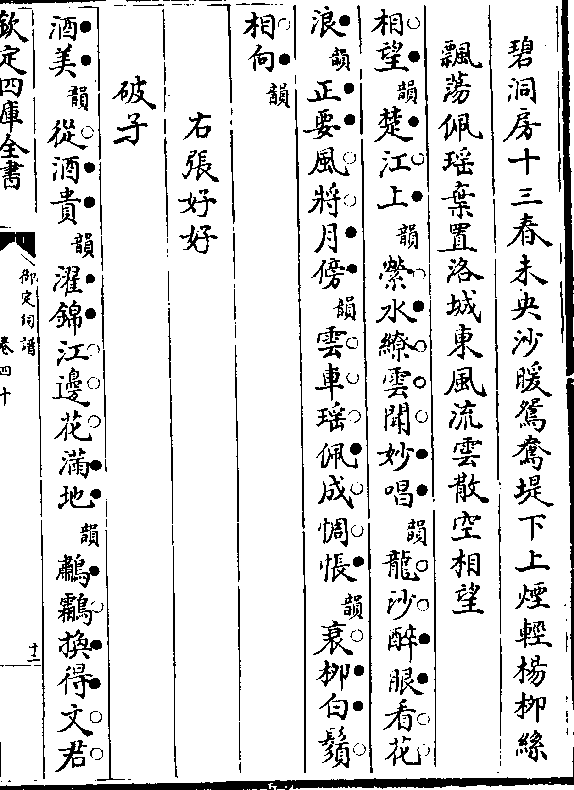 碧洞房十三春未央沙暖鴛鴦堤下上煙輕楊柳絲
飄蕩佩瑶棄置洛城東風流雲散空相望
相望韻楚江上韻縈水繚雲聞妙唱韻龍沙醉眼看花
浪韻正要風將月傍韻雲車瑶佩成惆悵韻衰柳白鬚
相向韻
右張好好
破子
酒美韻從酒貴韻濯錦江邊花滿地韻鷫鸘換得文君
欽定四庫全書
御定詞譜
卷四十
十二